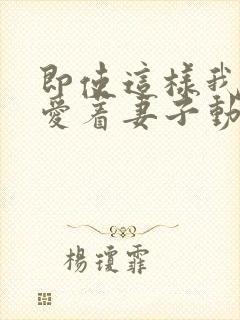 即使這樣我
愛着妻子動
楊瓊霏